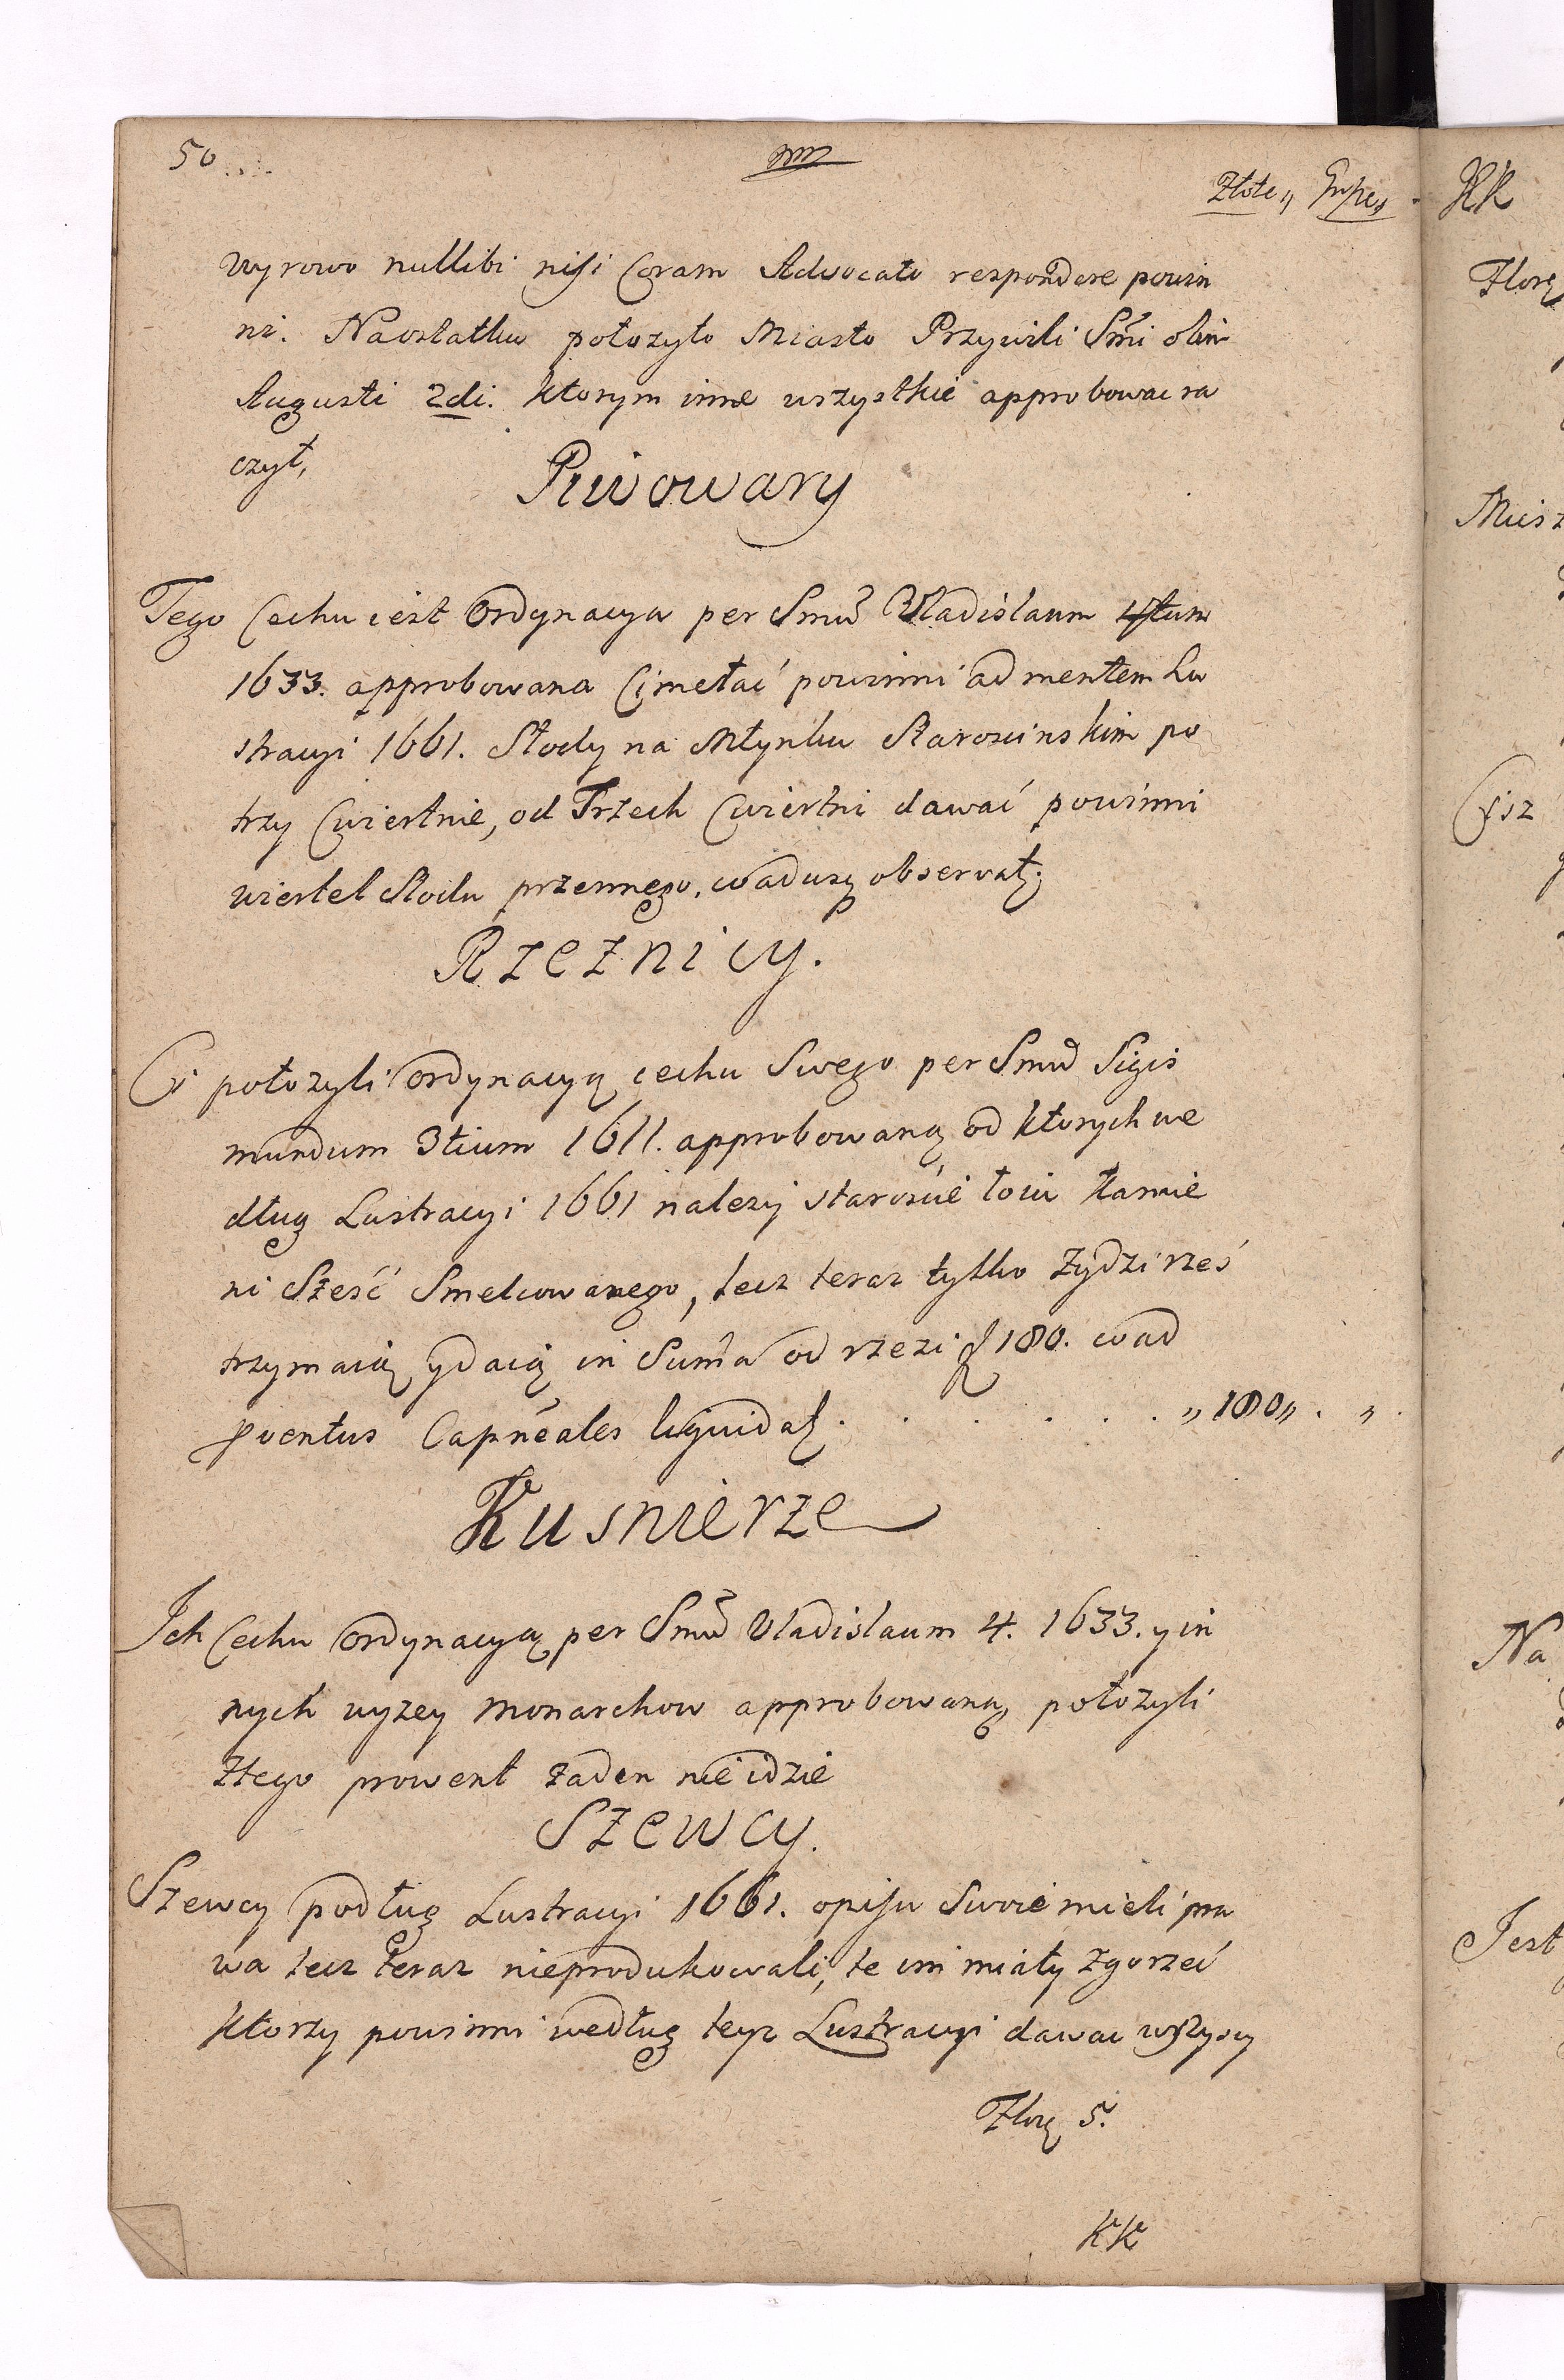 50...
Złote „ Grosze „
wyrowo nullibi nisi Coram Advocato respondere powin
ni. Naostatku położyło Miasto Przywili Smi olim
Augusti 2di. ktorym inne wszystkie approbowac ra
czył,
Piwowary
Tego Cechu iest Ordynacya per Smũ Vladislaum 4tum
1633. approbowana Ci mełać powinni ad mentem Lu
stracyi 1661. Słody na Młynku Staroscinskim po
trzy Cwiertnie, od Trzech Cwiertni dawać powinni
wiertel słodu przennego.
Rzeznicy.
Ci położyli ordynacyą cechu Swego per Smũ Sigis
mundum 3tium 1611. approbowaną od ktorych we
dług Lustracyi 1661 należy staroscie łoiu kamie
ni Szesć Smelcowanego, lecz teraz tylko Zydzi rześ
trzymaią y daią in Suma od rzezi f 180. co ad
pventus Capñeales liquidat. . . . . . . „ 180 „ . „ .
Kusnierze
Ich Cechu Ordynacyą per Smũ Vladislaum 4. 1633. y in
nych wyzey Monarchow approbowaną położyli
z tego prowent żaden nie idzie
Szewcy.
Szewcy podług Lustracyi 1661. opisu Swoie mieli pra
wa lecz teraz nieprodukowali, te im miały zgorzeć
ktorzy powinni według teyz Lustracyi dawac wszyscy
Złoy 5.
KK
KK
Złoy
Miesz
Na
Jest